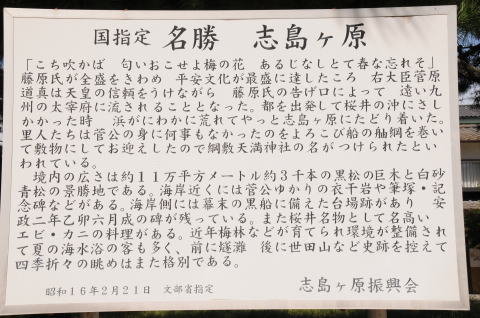 国指定 名勝 志島ヶ原
「こち吹かば 匂いおこせよ梅の花 あるじなしとて春な忘れそ」
藤原氏が全盛をきわめ 平安文化が最盛に達したころ 右大臣菅原
道真は天皇の信頼をうけながら 藤原氏の告げ口によって 遠い九
州の太宰府に流されることとなった。都を出発して桜井の沖にさし
かかった時 浜がにわかに荒れてやっと志島ヶ原にたどり着いた。
里人たちは菅公の身に何事もなかったのをよろこび船の舳綱を巻い
て敷物にしてお迎えしたので綱敷天満神社の名がつけられたとい
われている。
境内の広さは約11万平方メートル約3千本の黒松の巨木と白砂
青松の景勝地である。海岸近くには菅公ゆかりの衣干岩や筆塚・記
念碑などがある。海岸側には幕末の黒船に備えた台場跡があり 安
政二年乙卯六月成の碑が残っている。また桜井名物として名高い
エビ・カニの料理がある。近年梅林などが育てられ環境が整備され
て夏の海水浴の客も多く、前に燧灘 後に世田山など史跡を控えて
四季折々の眺めはまた格別である。
昭和16年2月21日 文部省指定 志島ヶ原振興会